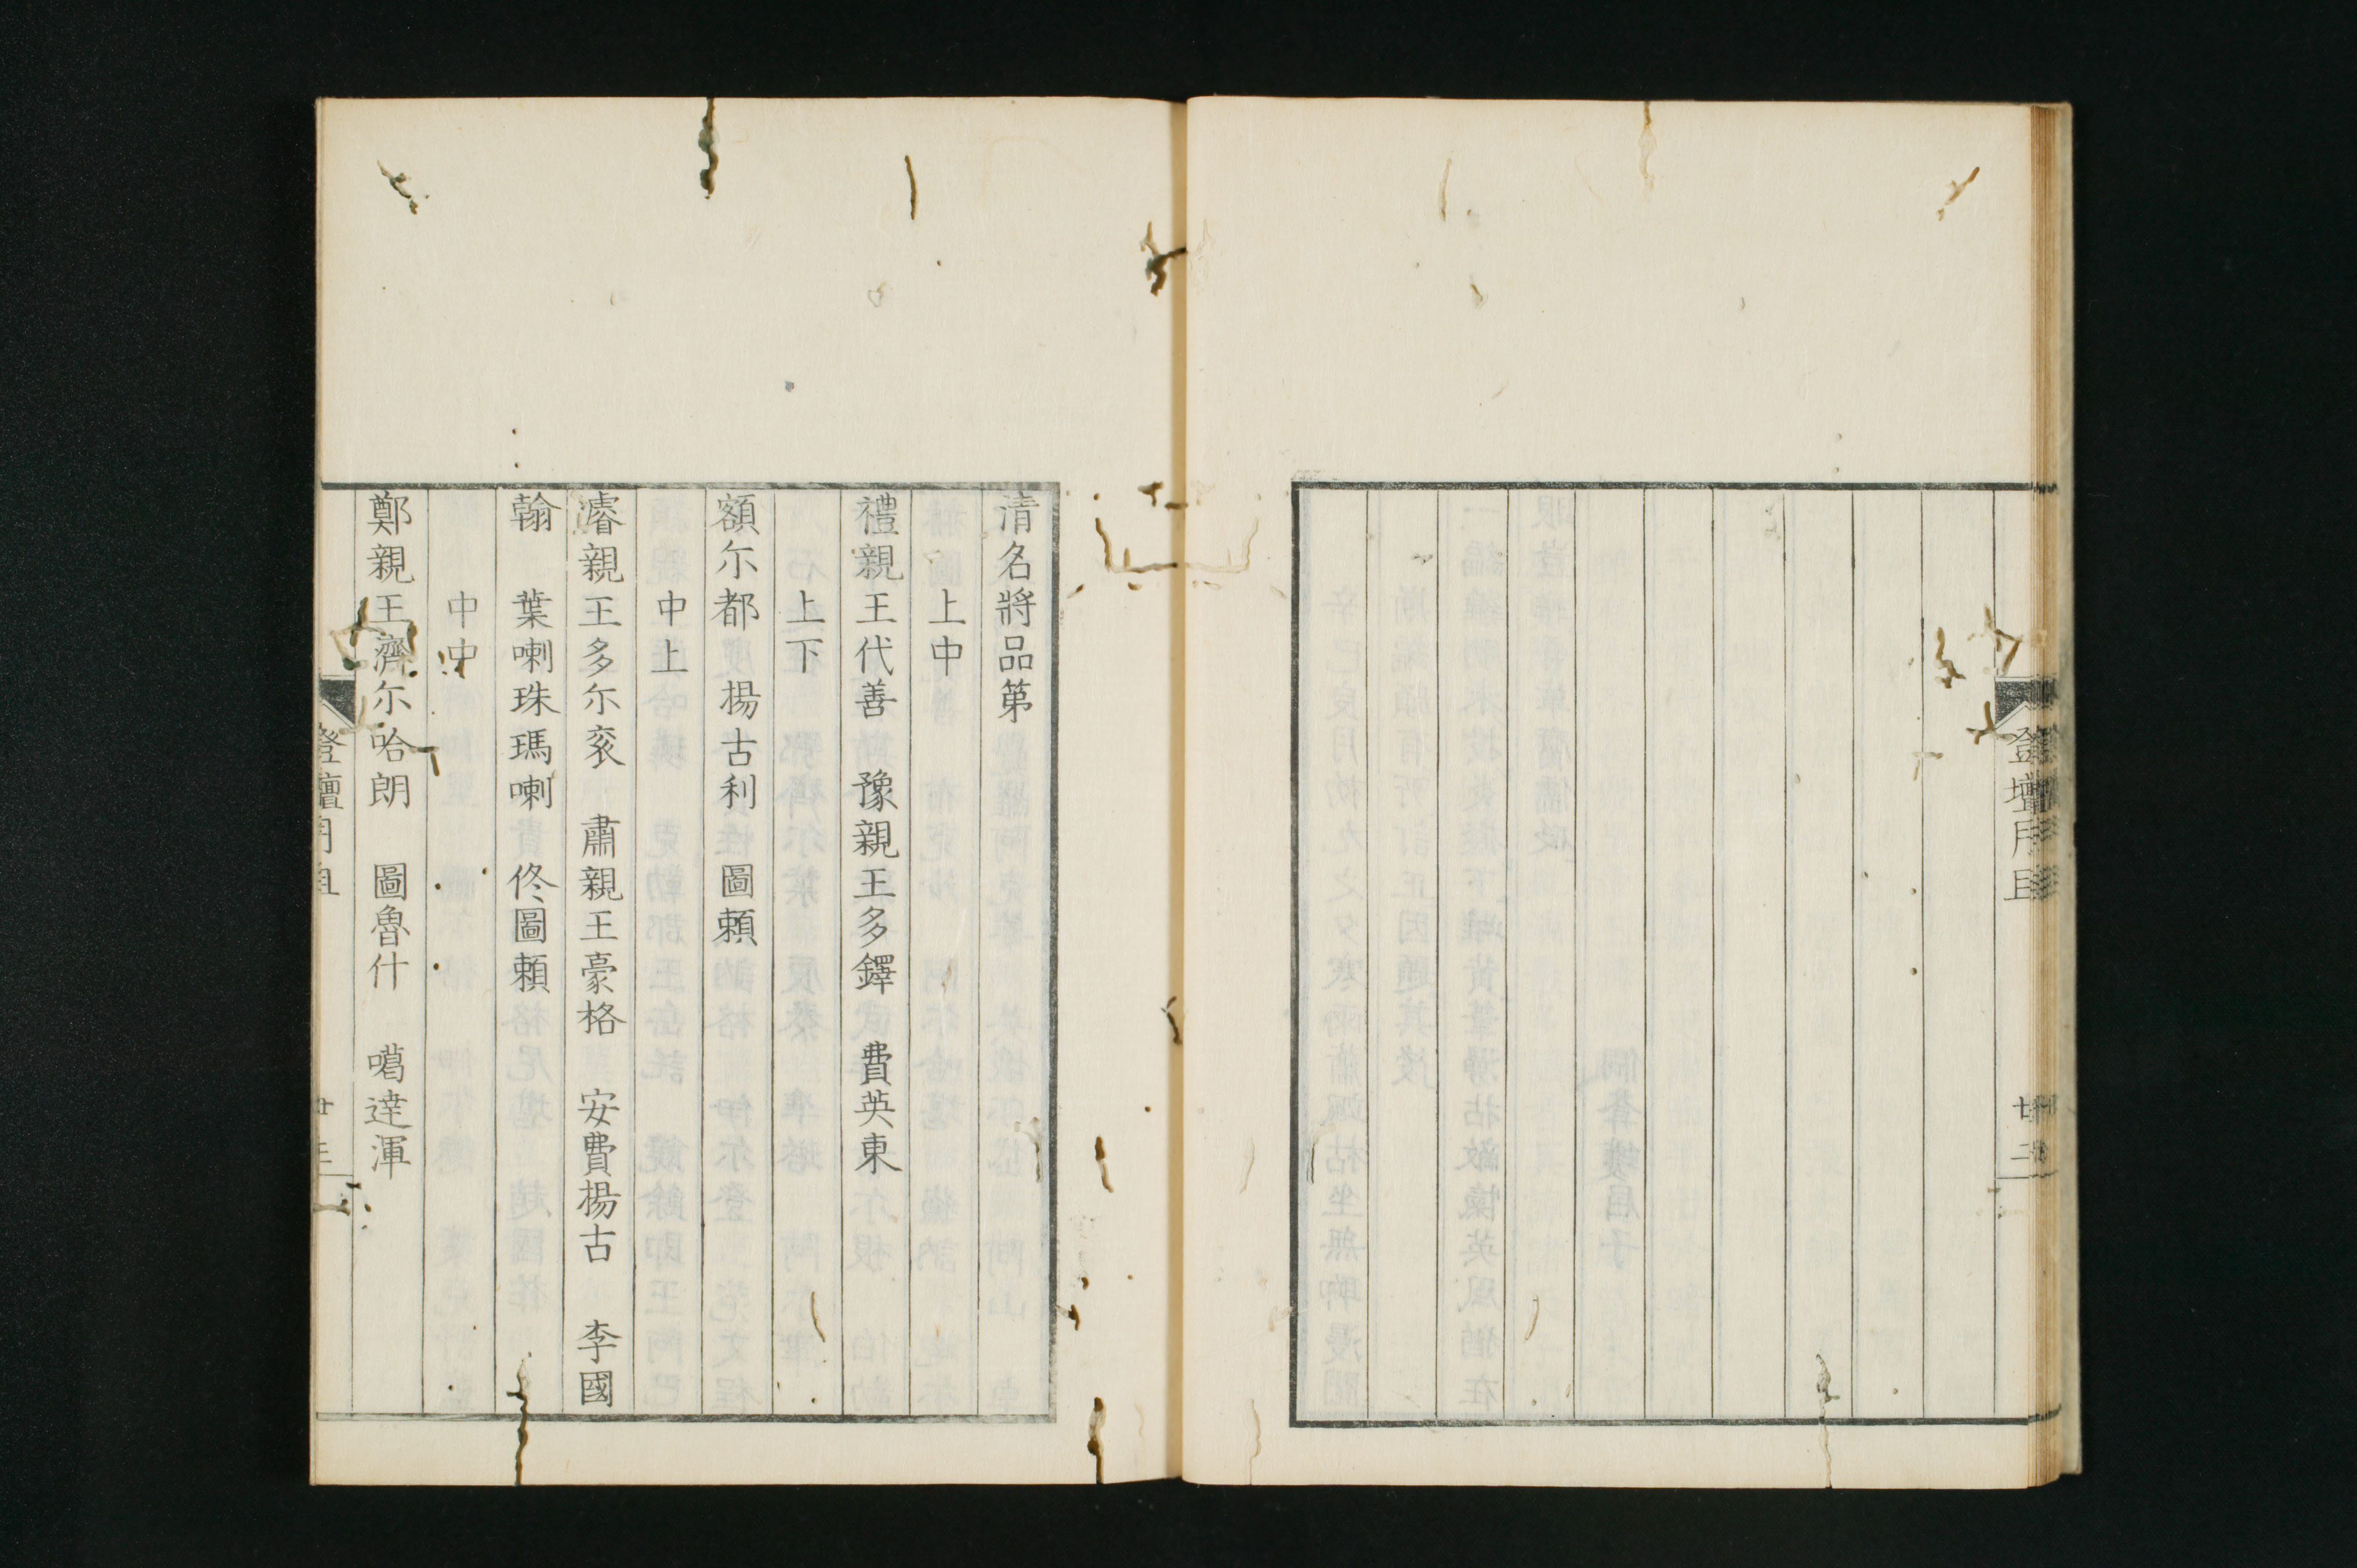 登壇月旦
廿二
清名將品第
上中
禮親王代善　豫親王多鐸　費英東
上下
額尓都　揚古利　圖賴
中上
濬親王多尓衮　肅親王豪格　安費揚古　李國
翰　葉喇珠瑪喇　佟圖賴
中中
鄭親王濟尓哈朗　圖魯什　噶達渾
登壇月旦
廿三